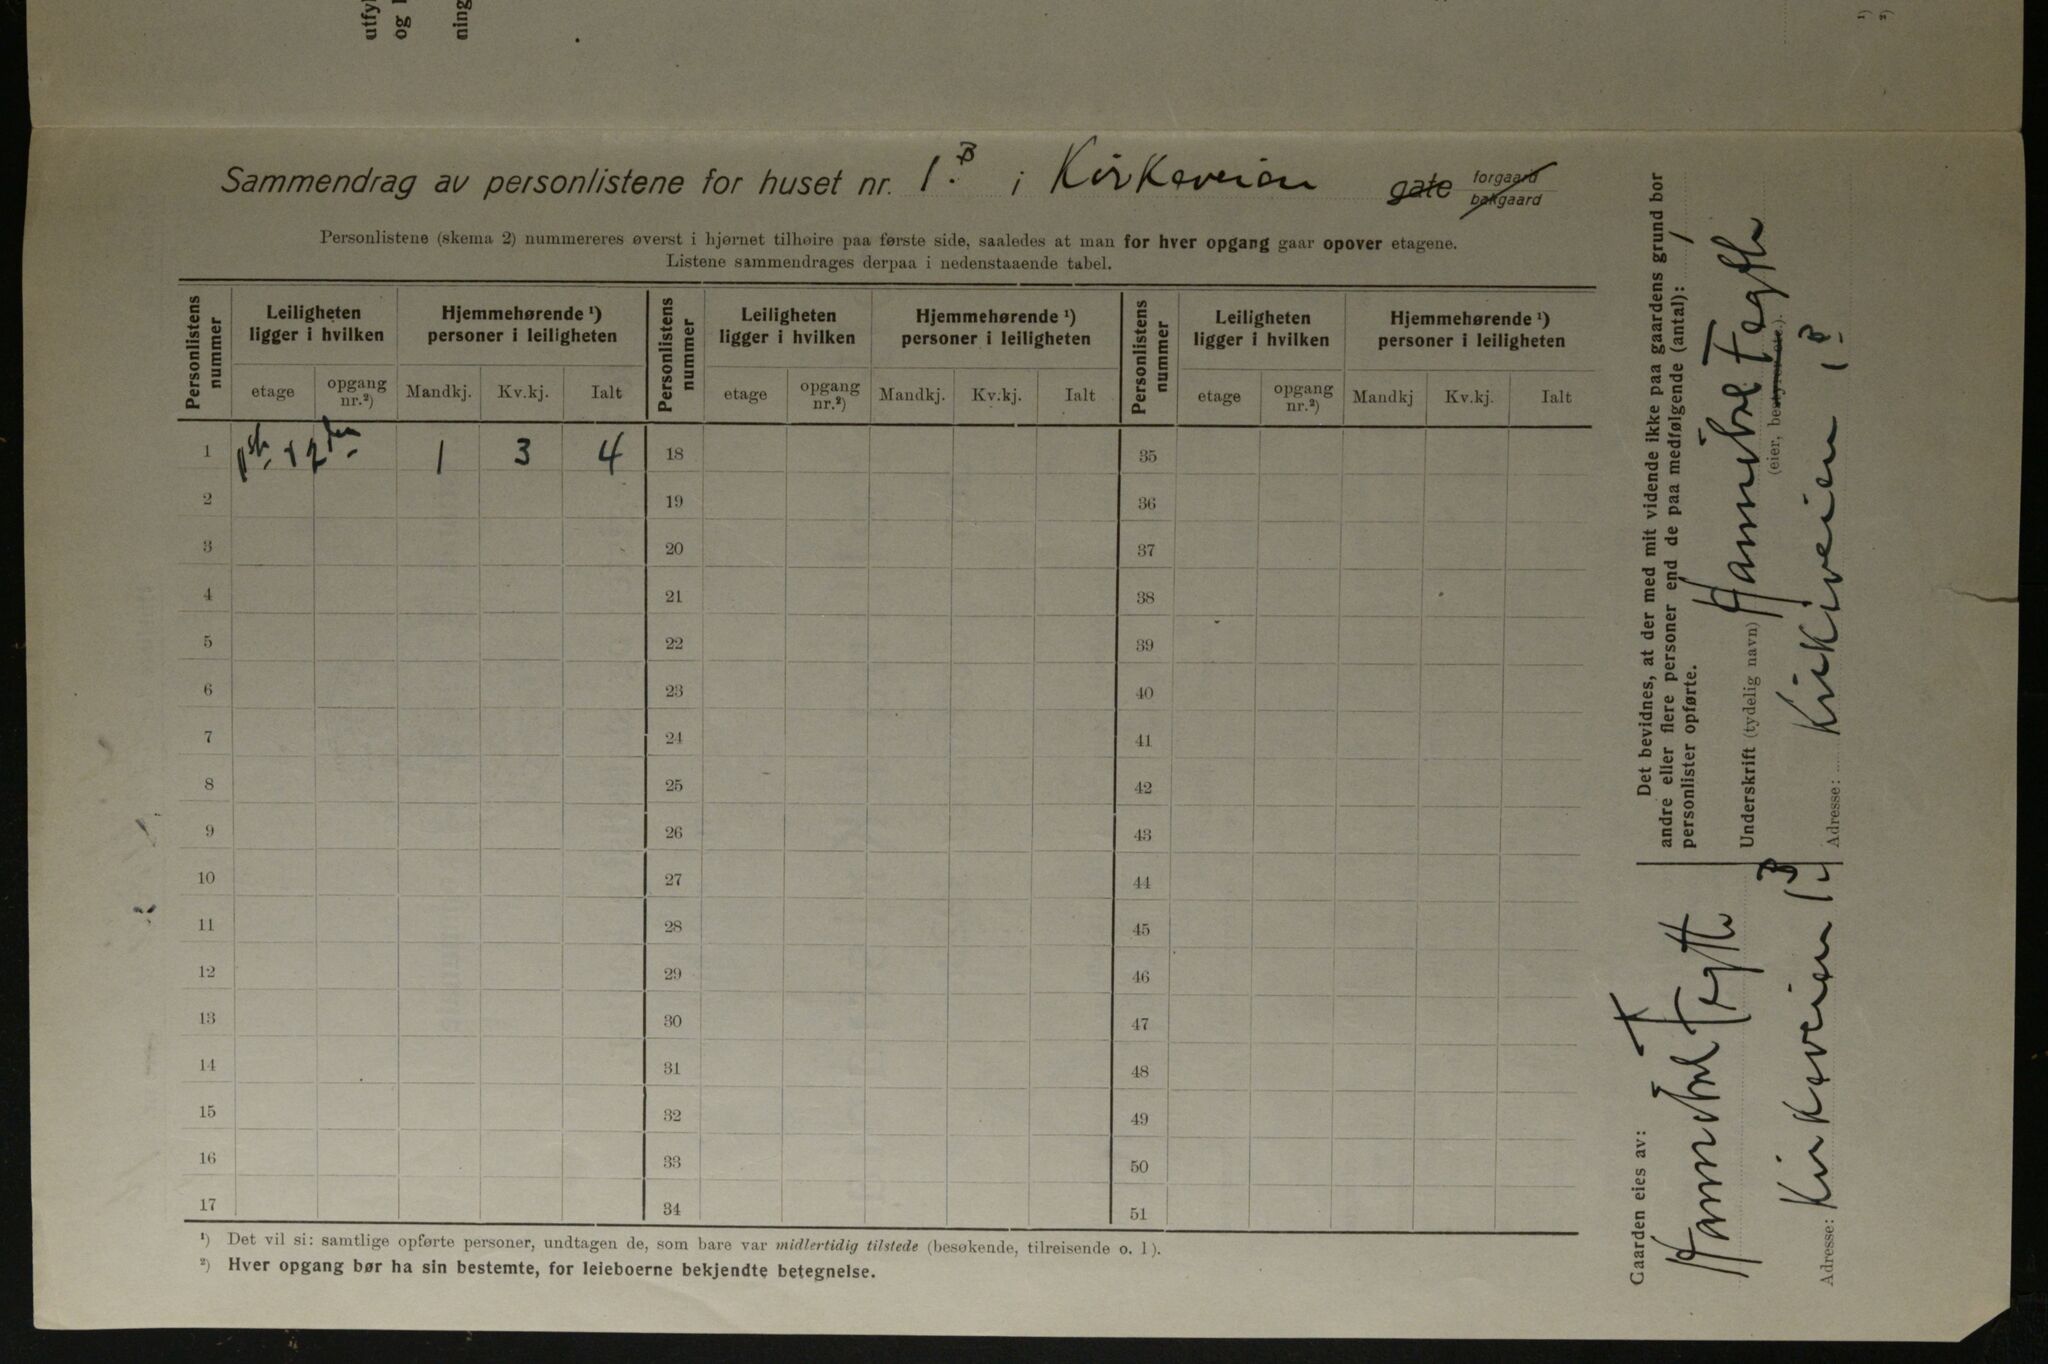 utfy
og
ning
1)
2)
Sammendrag av personlistene for huset nr. 1.B i Kirkeveien gate forgaard bakgaard
Personlistene (skema 2) nummereres øverst i hjørnet tilhøire paa første side, saaledes at man for hver opgang gaar opover etagene.
Listene sammendrages derpaa i nedenstaaende tabel.
Personlistens nummer Leiligheten ligger i hvilken Hjemmehørende ¹) personer i leiligheten Personlistens nummer Leiligheten ligger i hvilken Hjemmehørende ¹) personer i leiligheten Personlistens nummer Leiligheten ligger i hvilken Hjemmehørende ¹) personer i leiligheten
etage opgang nr.²) Mandkj. Kv.kj. Ialt etage opgang nr.²) Mandkj. Kv.kj. Ialt etage opgang nr.²) Mandkj Kv.kj. Ialt
1 1ste + 2den 1 3 4 18 35
2 19 36
3 20 37
4 21 38
5 22 39
6 23 40
7 24 41
8 25 42
9 26 43
10 27 44
11 28 45
12 29 46
13 30 47
14 31 48
15 32 49
16 33 50
17 34 51
¹) Det vil si: samtlige opførte personer, undtagen de, som bare var midlertidig tilstede (besøkende, tilreisende o. l).
²) Hver opgang bør ha sin bestemte, for leieboerne bekjendte betegnelse.
Det bevidnes, at der med mit vidende ikke paa gaardens grund bor
andre eller flere personer end de paa medfølgende (antal): 1
personlister opførte.
Underskrift (tydelig navn) Hannibal Fegth
(eier, bestyrer etc.).
Adresse: Kirkeveien 1B.
Gaarden eies av:
Hannibal Fegth
Adresse: Kirkeveien 1B